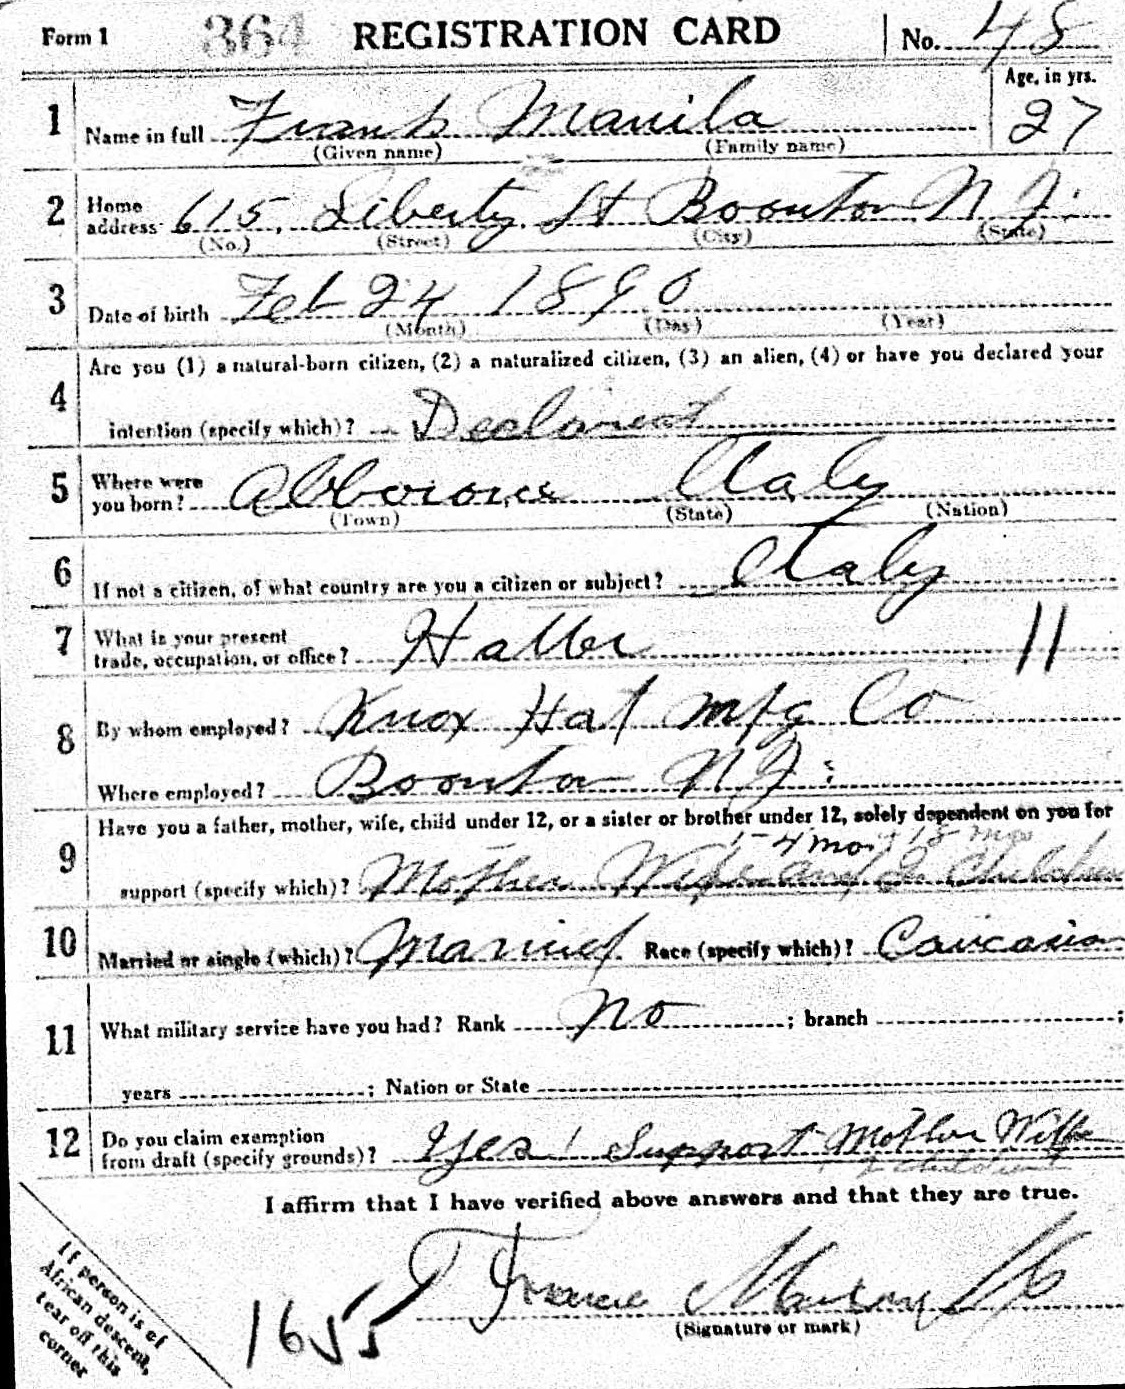 Form 1 364 REGISTRATION CARD No. 48
Age, in yrs.
1 Name in full Frank Manila 27
(Given name) (Family name)
2 Home address 615, Liberty St Boonton N J.
(No.) (Street) (City) (State)
3 Date of birth Feb 24 1890
(Month) (Day) (Year)
Are you (1) a natural-born citizen, (2) a naturalized citizen, (3) an alien, (4) or have you declared your
4 intention (specify which)? Declarent
5 Where were you born? Italy
(Town) (State) (Nation)
6 If not a citizen, of what country are you a citizen or subject? Italy
7 What is your present trade, occupation, or office? Hatter 11
8 By whom employed? Knox Hat Mfg Co
Where employed? Boonton N J.
Have you a father, mother, wife, child under 12, or a sister or brother under 12, solely dependent on you for
1-4 mo. 1 18 mos
9 support (specify which)? Mother Wife and 2 Children
10 Married or single (which)? Married Race (specify which)? Caucasian
11 What military service have you had? Rank No ; branch ;
years ; Nation or State
12 Do you claim exemption from draft (specify grounds)? Yes! Support Mother Wife
2 children
I affirm that I have verified above answers and that they are true.
1655
(Signature or mark)
If person is of
African descent,
tear off this
corner